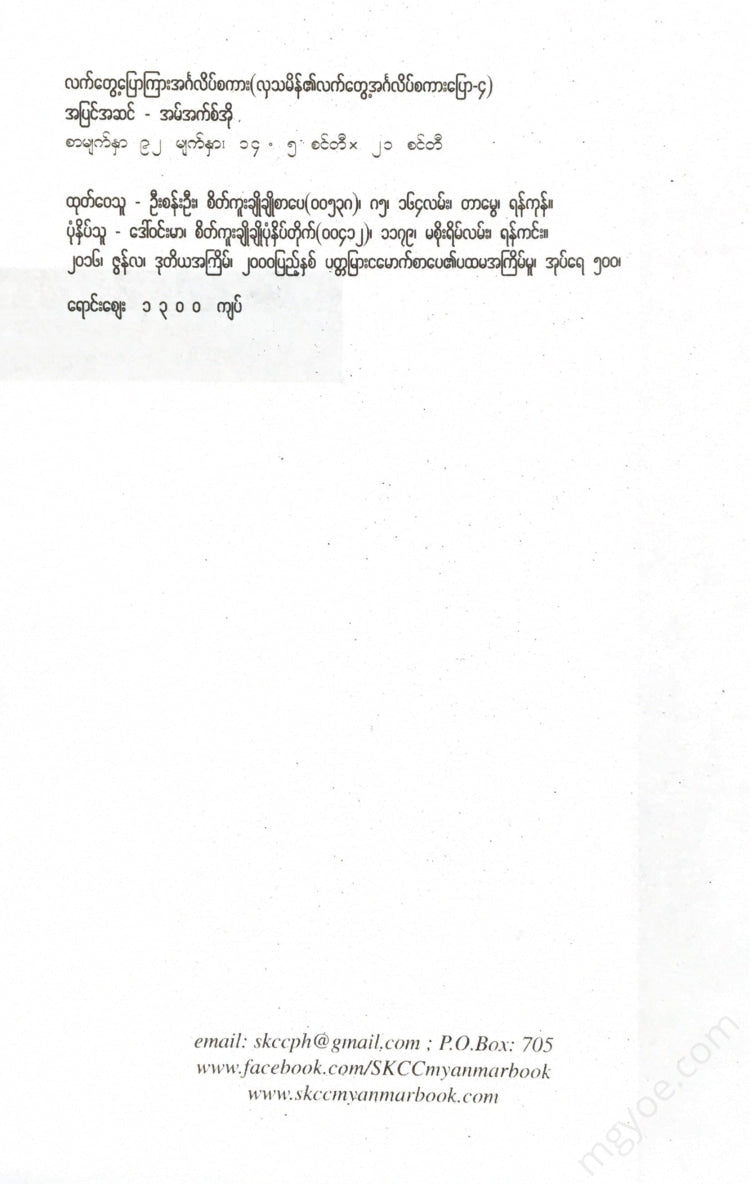 လက်တွေ့ပြောကြားအင်္ဂလိပ်စကား(လှသမိန်၏လက်တွေ့အင်္ဂလိပ်စကားပြော-၄)
အပြင်အဆင် - အမ်အက်စ်အို
စာမျက်နှာ ၉၂ မျက်နှာ၊ ၁၄ . ၅ စင်တီ× ၂၁ စင်တီ
ထုတ်ဝေသူ - ဦးစန်းဦး၊ စိတ်ကူးချိုချိုစာပေ(၀၀၅၃၈)၊ ဂ၅၊ ၁၆၄လမ်း၊ တာမွေ၊ ရန်ကုန်။
ပုံနှိပ်သူ - ဒေါ်ဝင်းမာ၊ စိတ်ကူးချိုချိုပုံနှိပ်တိုက်(၀၀၄၁၂)၊ ၁၁၇၉၊ မစိုးရိမ်လမ်း၊ ရန်ကင်း။
၂၀၁၆၊ ဇွန်လ၊ ဒုတိယအကြိမ်၊ ၂၀၀၀ပြည့်နှစ် ပတ္တမြားငမောက်စာပေ၏ပထမအကြိမ်မူ၊ အုပ်ရေ ၅၀၀၊
ရောင်းဈေး ၁ ၃ ၀ ၀ ကျပ်
email: skccph@gmail.com ; P.O.Box: 705
www.facebook.com/SKCCmyanmarbook
www.skccmyanmarbook.com
mgyoe.com